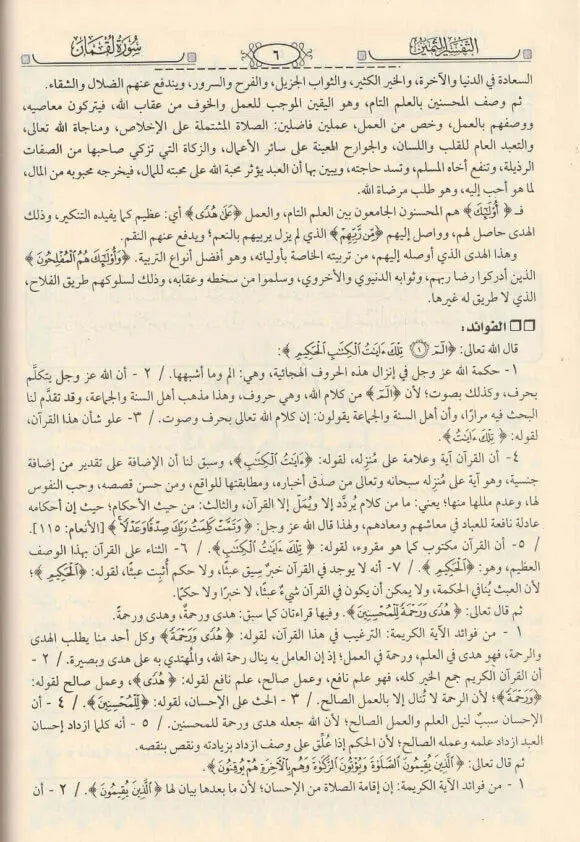 التفسير الثمين
٦
سورة لقمان
السعادة في الدنيا والآخرة، والخير الكثير، والثواب الجزيل، والفرح والسرور، ويندفع عنهم الضلال والشقاء.
ثم وصف المحسنين بالعلم التام، وهو اليقين الموجب للعمل والخوف من عقاب الله، فيتركون معاصيه،
ووصفهم بالعمل، وخص من العمل، عملين فاضلين: الصلاة المشتملة على الإخلاص، ومناجاة الله تعالى،
والتعبد العام للقلب واللسان، والجوارح المعينة على سائر الأعمال، والزكاة التي تزكي صاحبها من الصفات
الرذيلة، وتنفع أخاه المسلم، وتسد حاجته، ويبين بها أن العبد يؤثر محبة الله على محبته للمال، فيخرجه محبوبه من المال،
لما هو أحب إليه، وهو طلب مرضاة الله.
فـ ﴿أُوْلَٰٓئِكَ﴾ هم المحسنون الجامعون بين العلم التام، والعمل ﴿عَلَىٰ هُدًى﴾ أي: عظيم كما يفيده التنكير، وذلك
الهدى حاصل لهم، وواصل إليهم ﴿مِّن رَّبِّهِمْ﴾ الذي لم يزل يربيهم بالنعم؛ ويدفع عنهم النقم.
وهذا الهدى الذي أوصله إليهم، من تربيته الخاصة بأوليائه، وهو أفضل أنواع التربية. ﴿وَأُوْلَٰٓئِكَ هُمُ ٱلْمُفْلِحُونَ﴾
الذين أدركوا رضا ربهم، وثوابه الدنيوي والأخروي، وسلموا من سخطه وعقابه، وذلك لسلوكهم طريق الفلاح،
الذي لا طريق له غيرها.
❏❏ الفوائد:
قال الله تعالى: ﴿الٓمٓ ۝١ تِلْكَ ءَايَٰتُ ٱلْكِتَٰبِ ٱلْحَكِيمِ﴾:
١ - حكمة الله عز وجل في إنزال هذه الحروف الهجائية، وهي: الم وما أشبهها. / ٢ - أن الله عز وجل يتكلَّم
بحرف، وكذلك بصوت؛ لأن ﴿الٓمٓ﴾ من كلام الله، وهي حروف، وهذا مذهب أهل السنة والجماعة، وقد تقدَّم لنا
البحث فيه مرارًا، وأن أهل السنة والجماعة يقولون: إن كلام الله تعالى بحرف وصوت. / ٣- علو شأن هذا القرآن،
لقوله: ﴿تِلْكَ ءَايَٰتُ﴾.
٤- أن القرآن آية وعلامة على مُنزله، لقوله: ﴿ءَايَٰتُ ٱلْكِتَٰبِ﴾، وسبق لنا أن الإضافة على تقدير من إضافة
جنسية، وهو آية على مُنزله سبحانه وتعالى من صدق أخباره، ومطابقتها للواقع، ومن حسن قصصه، وحب النفوس
لها، وعدم مللها منها؛ يعني: ما من كلام يُردَّد إلا ويُمَلّ إلا القرآن، والثالث: من حيث الأحكام؛ حيث إن أحكامه
عادلة نافعة للعباد في معاشهم ومعادهم، ولهذا قال الله عز وجل: ﴿وَتَمَّتْ كَلِمَتُ رَبِّكَ صِدْقًا وَعَدْلًا﴾ [الأنعام: ١١٥].
/ ٥- أن القرآن مكتوب كما هو مقروء، لقوله: ﴿تِلْكَ ءَايَٰتُ ٱلْكِتَٰبِ﴾. / ٦- الثناء على القرآن بهذا الوصف
العظيم، وهو: ﴿ٱلْحَكِيمِ﴾. / ٧- أنه لا يوجد في القرآن خبرٌ سِيق عبثًا، ولا حكم أُثبِت عبثًا، لقوله: ﴿ٱلْحَكِيمِ﴾؛
لأن العبث يُنافي الحكمة، ولا يمكن أن يكون في القرآن شيءٌ عبثًا، لا خبرًا ولا حكمًا.
ثم قال تعالى: ﴿هُدًى وَرَحْمَةً لِّلْمُحْسِنِينَ﴾. وفيها قراءتان كما سبق: هدى ورحمةٌ، وهدى ورحمةً.
١ - من فوائد الآية الكريمة: الترغيب في هذا القرآن، لقوله: ﴿هُدًى وَرَحْمَةً﴾ وكل أحد منا يطلب الهدى
والرحمة، فهو هدى في العلم، ورحمة في العمل؛ إذ إن العامل به ينال رحمة الله، والمُهتدي به على هدى وبصيرة. / ٢ -
أن القرآن الكريم جمع الخير كله، فهو علم نافع، وعمل صالح، علم نافع لقوله: ﴿هُدًى﴾، وعمل صالح لقوله:
﴿وَرَحْمَةً﴾؛ لأن الرحمة لا تُنال إلا بالعمل الصالح. / ٣ - الحث على الإحسان، لقوله: ﴿لِّلْمُحْسِنِينَ﴾. / ٤ - أن
الإحسان سببٌ لنيل العلم والعمل الصالح؛ لأن الله جعله هدى ورحمة للمحسنين. / ٥ - أنه كلما ازداد إحسان
العبد ازداد علمه وعمله الصالح؛ لأن الحكم إذا عُلِّق على وصف ازداد بزيادته ونقص بنقصه.
ثم قال تعالى: ﴿ٱلَّذِينَ يُقِيمُونَ ٱلصَّلَوٰةَ وَيُؤْتُونَ ٱلزَّكَوٰةَ وَهُم بِٱلْءَاخِرَةِ هُمْ يُوقِنُونَ﴾.
١ - من فوائد الآية الكريمة: إن إقامة الصلاة من الإحسان؛ لأن ما بعدها بيان لها ﴿ٱلَّذِينَ يُقِيمُونَ﴾. / ٢ - أن